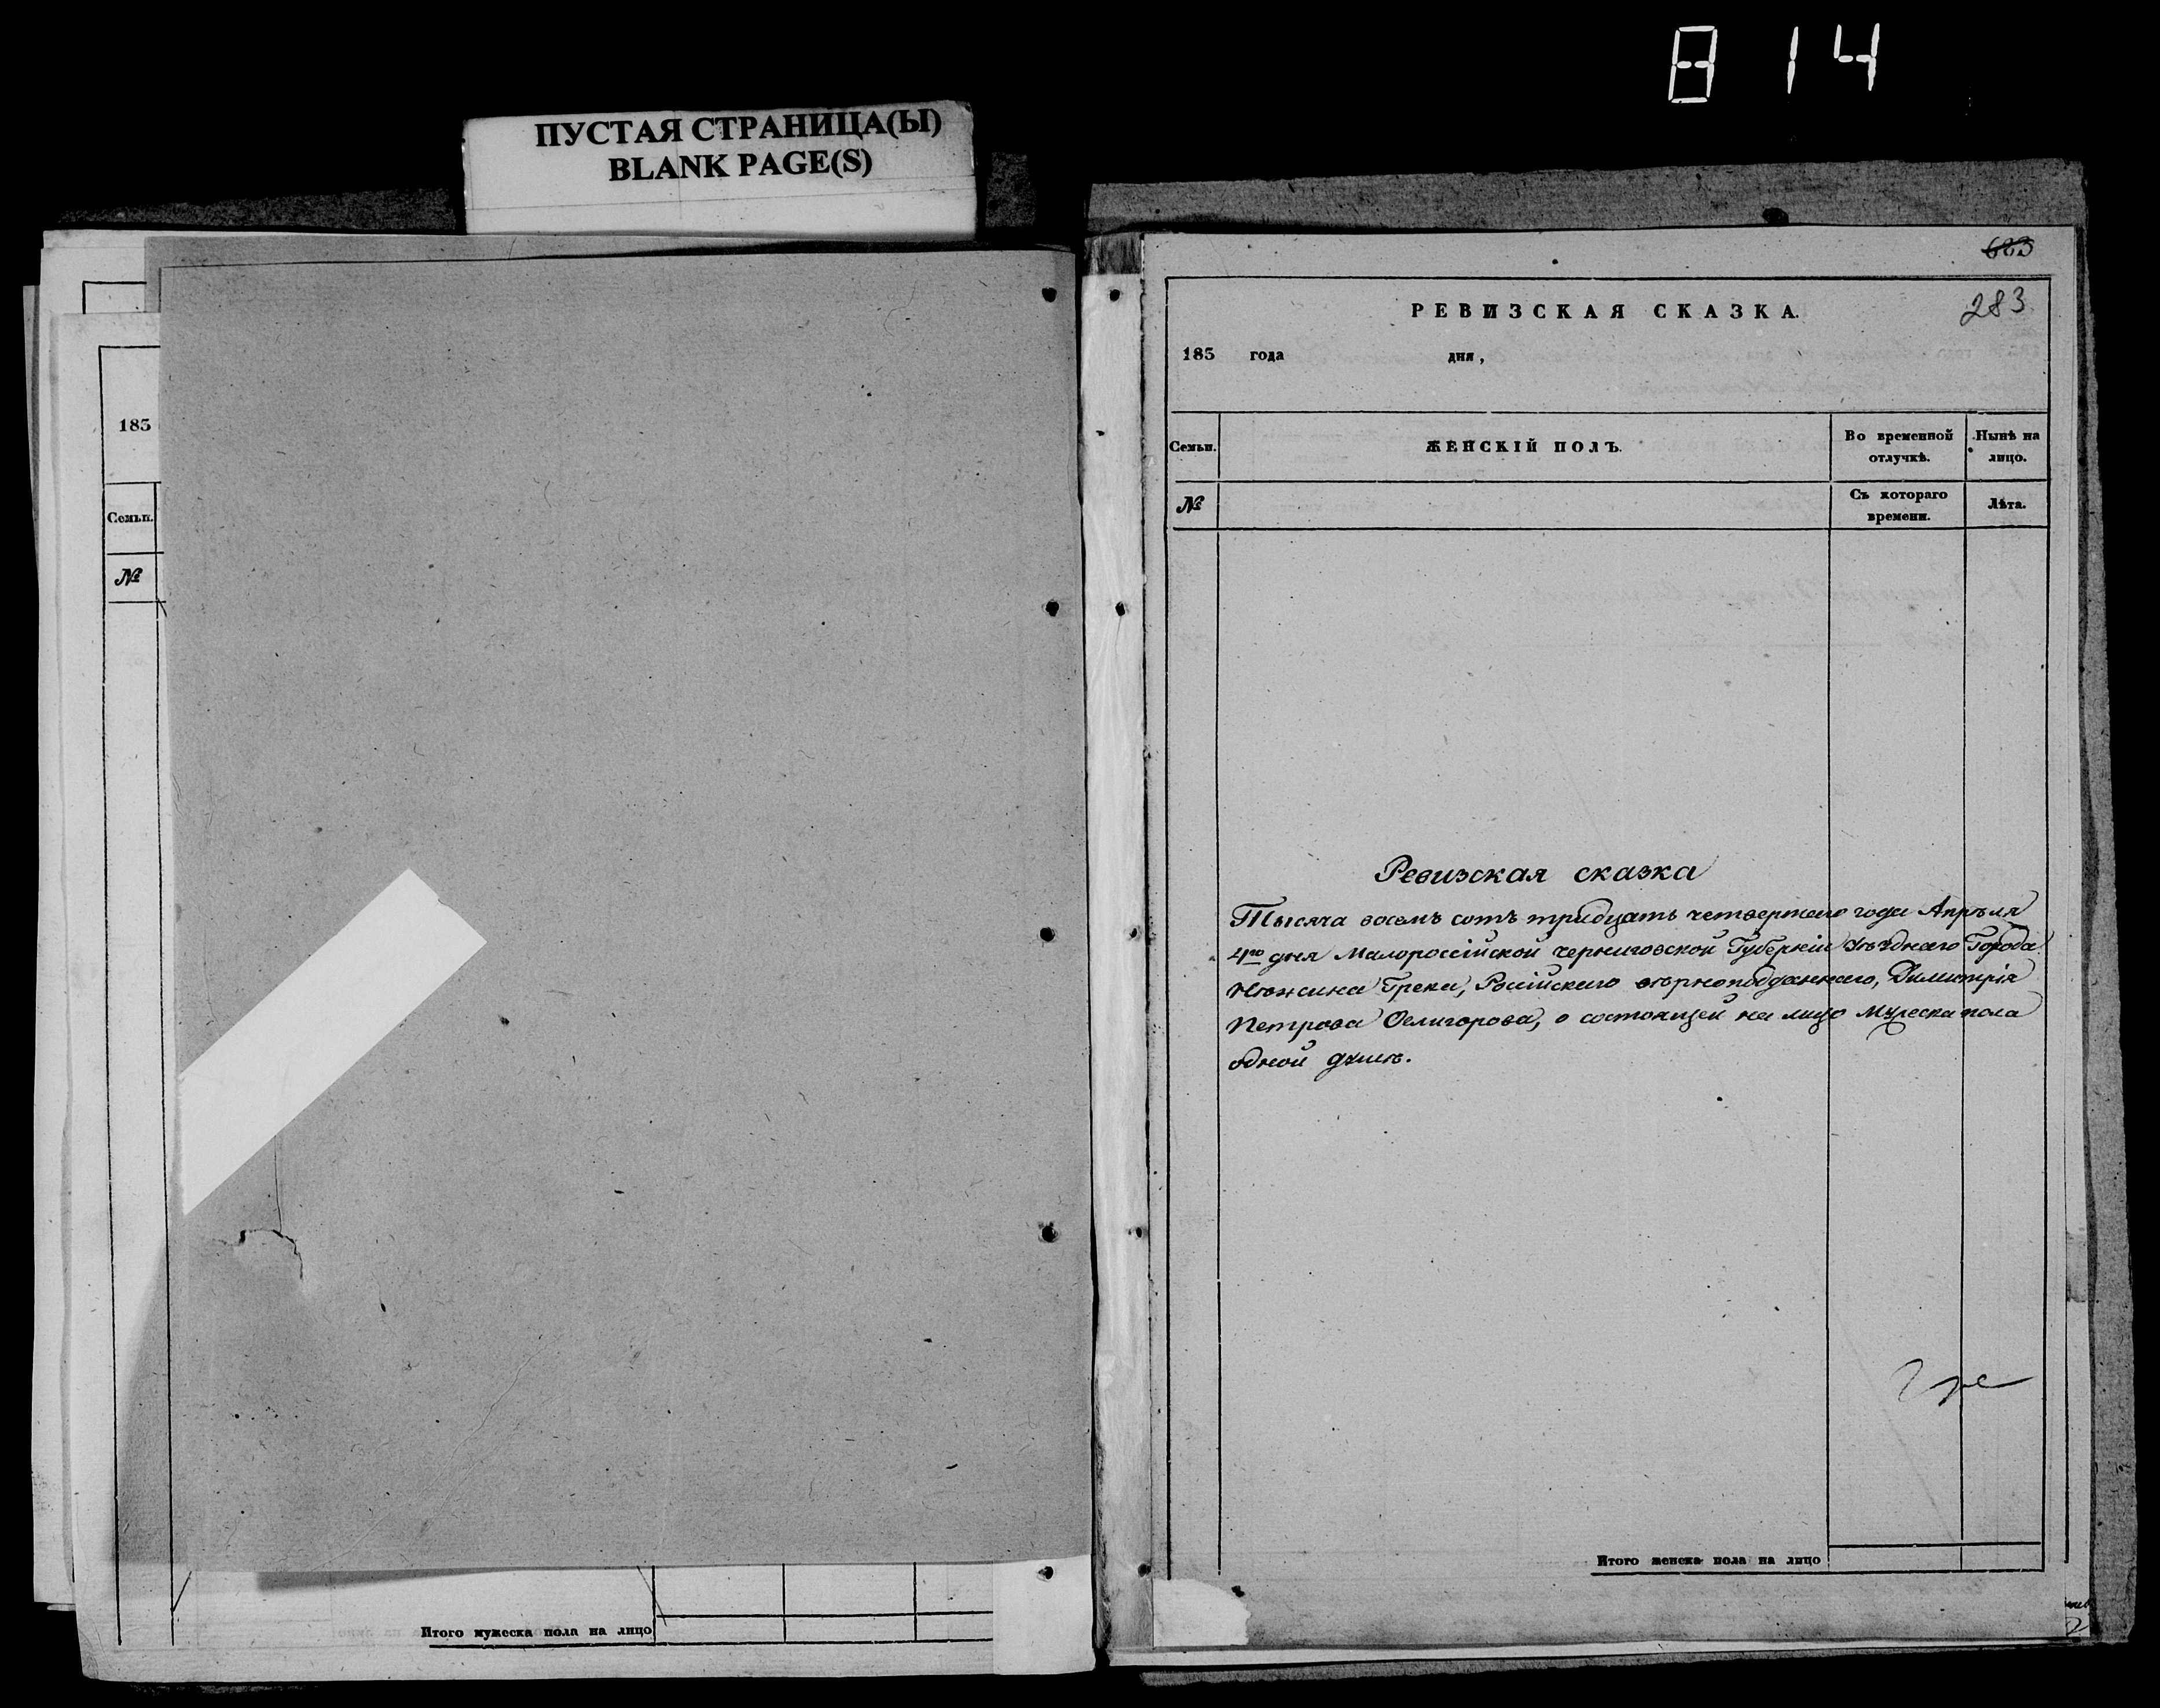 814
ПУСТАЯ СТРАНИЦА(Ы)
BLANK PAGE(S)
185
Семьи.
№
Итого мужеска пола на лицо
623
283
РЕВИЗСКАЯ СКАЗКА.
185 года дня,
Семьи. ЖЕНСКІЙ ПОЛЪ. Во временной отлучкѣ. Нынѣ на лицо.
№ Съ котораго времени. Лѣта.
Ревизская сказка
Тысяча восемъ сотъ тридцать четвертаго года Апрѣля
4го дня Малороссійской черниговской Губерніи уѣзднаго Города
Нѣжина Грека, Російскаго вѣрноподданнаго, Димитрія
Петрова Селигорова, о состоящей на лицо мужеска пола
одной душѣ.
Итого женска пола на лицо